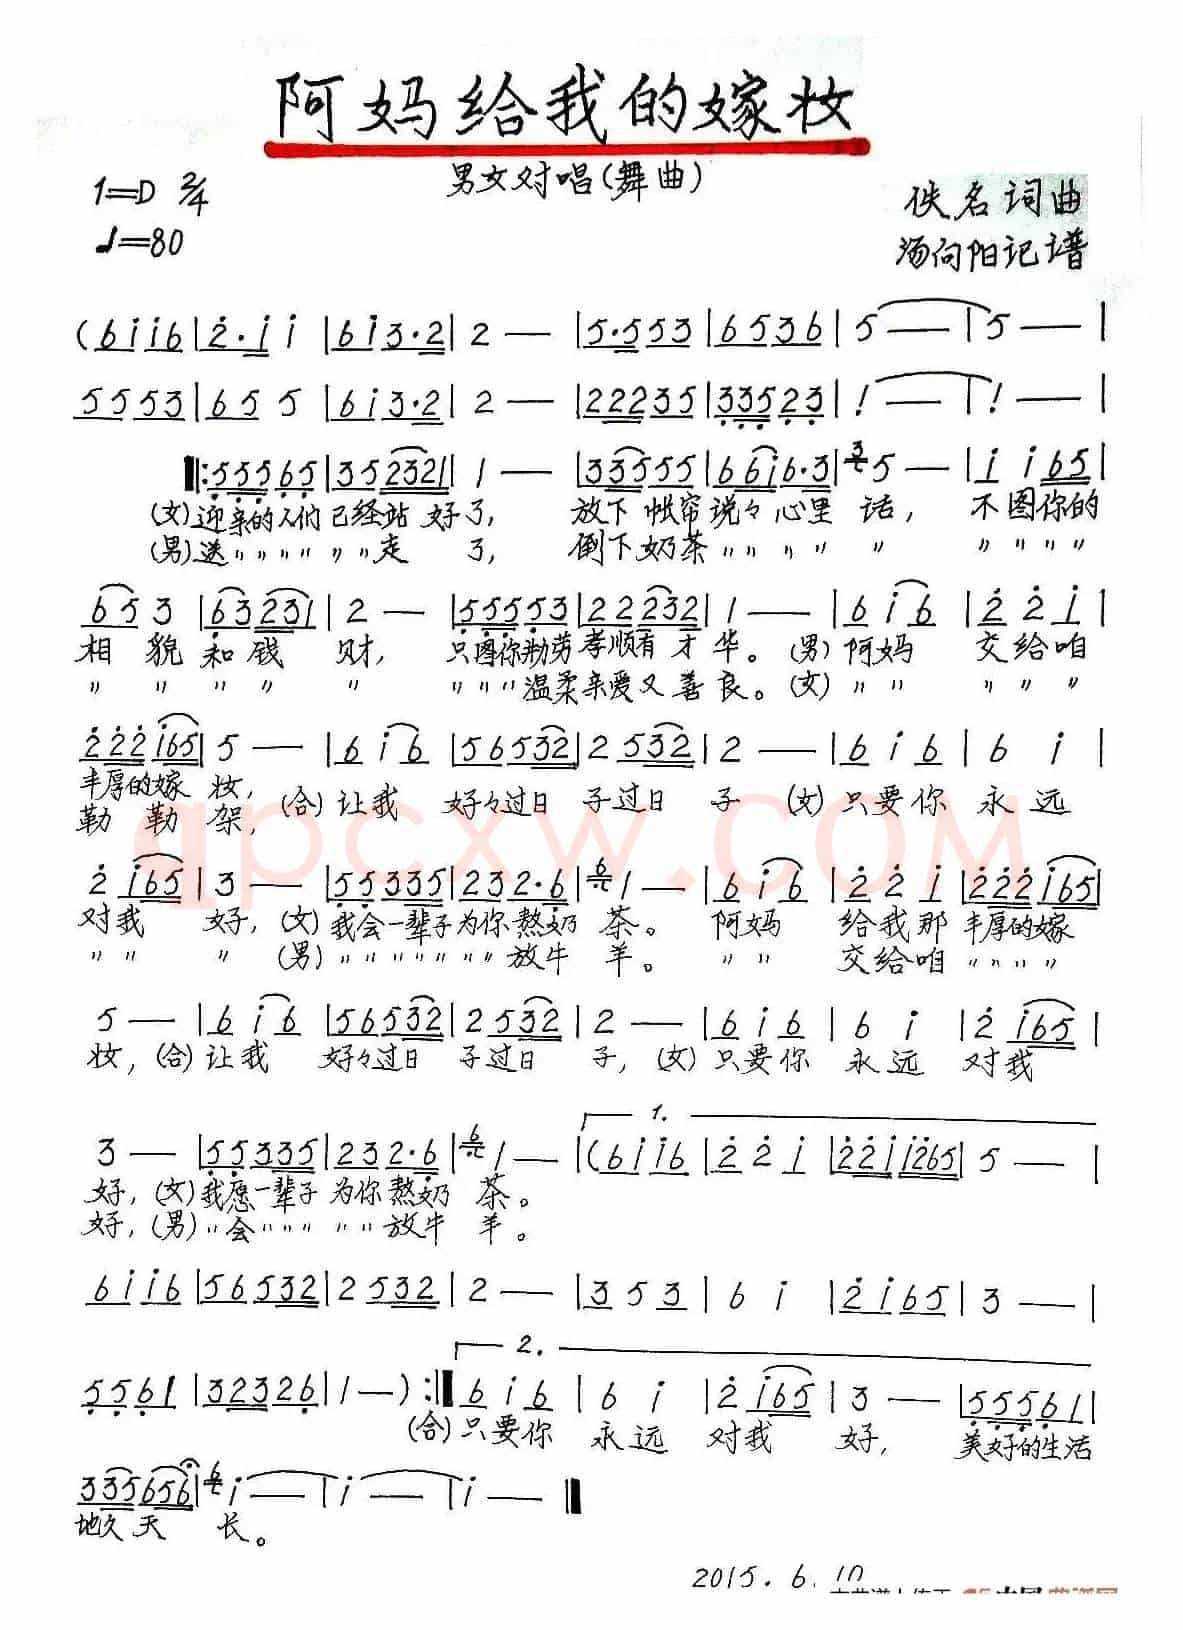 阿妈给我的嫁妆
男女对唱(舞曲)
1=D 2/4
佚名词曲
♩=80
汤向阳记谱
(6i i6|2·i i|6i3·2|2—|5·553|6536|5—|5—|
5553|655|6i3·2|2—|22235|33523|1—|1—|
‖:55565|352321|1—|33555|66i6·3|5—|i i65|
(女)迎亲的人们已经站好了, 放下帐帘说々心里话, 不图你的
(男)送〃〃〃〃〃〃走了, 倒下奶茶〃〃〃〃〃 〃〃〃〃
653|63231|2—|55553|222232|1—|6i6|22i|
相貌和钱财, 只图你勤劳孝顺有才华。(男)阿妈交给咱
〃〃〃〃〃 〃〃〃温柔亲爱又善良。(女)〃〃〃〃〃
222i65|5—|6i6|56532|2532|2—|6i6|6i|
丰厚的嫁妆, (合)让我 好々过日 子过日 子 (女)只要你永远
勒勒架,
2i65|3—|55335|232·6|1—|6i6|22i|222i65|
对我 好, (女)我会一辈子为你熬奶茶。 阿妈 给我那 丰厚的嫁
〃〃 〃 (男)〃〃〃〃〃〃〃放牛 羊。 〃〃 交给咱 〃〃〃〃
5—|6i6|56532|2532|2—|6i6|6i|2i65|
妆, (合)让我 好々过日 子过日 子, (女)只要你 永远 对我
1.
3—|55335|232·6|1—|(6i i6|22i|22i i265|5—|
好, (女)我愿一辈子 为你熬奶 茶。
好, (男)〃会〃〃〃 〃〃放牛 羊。
6i i6|56532|2532|2—|353|6i|2i65|3—|
2.
5561|32326|1—):‖6i6|6i|2i65|3—|55561|
(合)只要你 永远 对我 好, 美好的生活
335656|i—|i—|i—‖
地久天 长。
2015.6.10
qpcxw.com